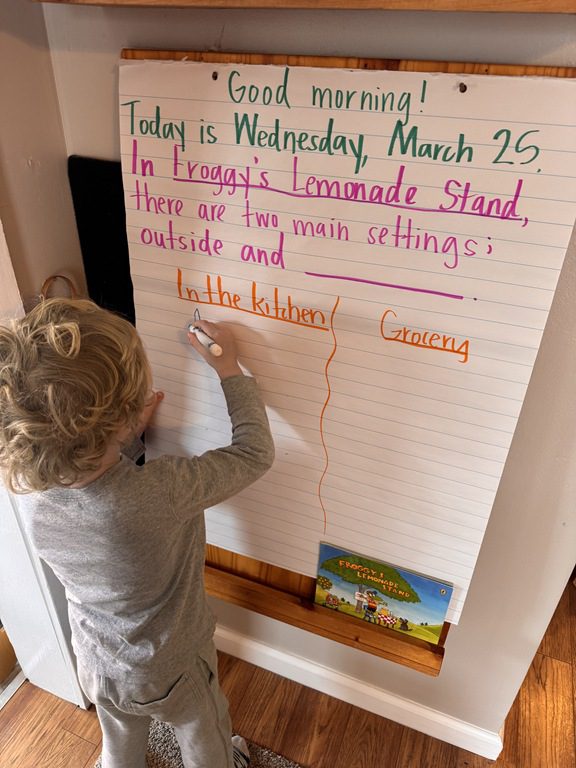 Good morning!
Today is Wednesday, March 25.
In Froggy's Lemonade Stand,
there are two main settings;
outside and ___________.
In the kitchen
Grocery
FROGGY'S
LEMONADE
STAND